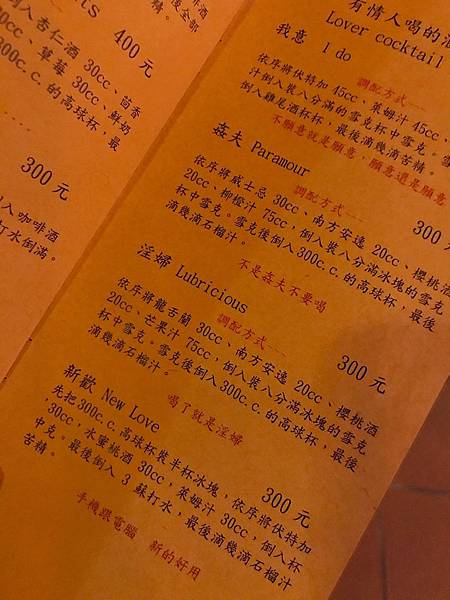 ts
倒入杏仁酒 30cc、茴香
400 元
20cc、草莓 30cc、鮮奶
300c.c.的高球杯，最
300 元
入咖啡酒
打水倒滿。
有情人喝的酒
Lover cocktail
我意 I do
調配方式
依序將伏特加 45cc、萊姆汁 45cc、
汁倒入裝八分滿的雪克杯中雪克。雪
倒入雞尾酒杯杯，最後滴幾滴苦精。
不願意就是願意，願意還是願意
300 元
姦夫 Paramour
調配方式
依序將威士忌 30cc、南方安逸 20cc、櫻桃酒
20cc、柳橙汁 75cc，倒入裝八分滿冰塊的雪克
杯中雪克。雪克後倒入300c.c.的高球杯，最後
滴幾滴石榴汁。
不是姦夫不要喝
300 元
淫婦 Lubricious
調配方式
依序將龍舌蘭 30cc、南方安逸 20cc、櫻桃酒
20cc、芒果汁 75cc，倒入裝八分滿冰塊的雪克
杯中雪克。雪克後倒入300c.c.的高球杯，最後
滴幾滴石榴汁。
喝了就是淫婦
300 元
新歡 New Love
先把300c.c.高球杯裝半杯冰塊，依序將伏特加
,30cc,水蜜桃酒 30cc，萊姆汁 30cc，倒入杯
中克。最後倒入 3 蘇打水，最後滴幾滴石榴汁
苦精。
手機跟電腦 新的好用